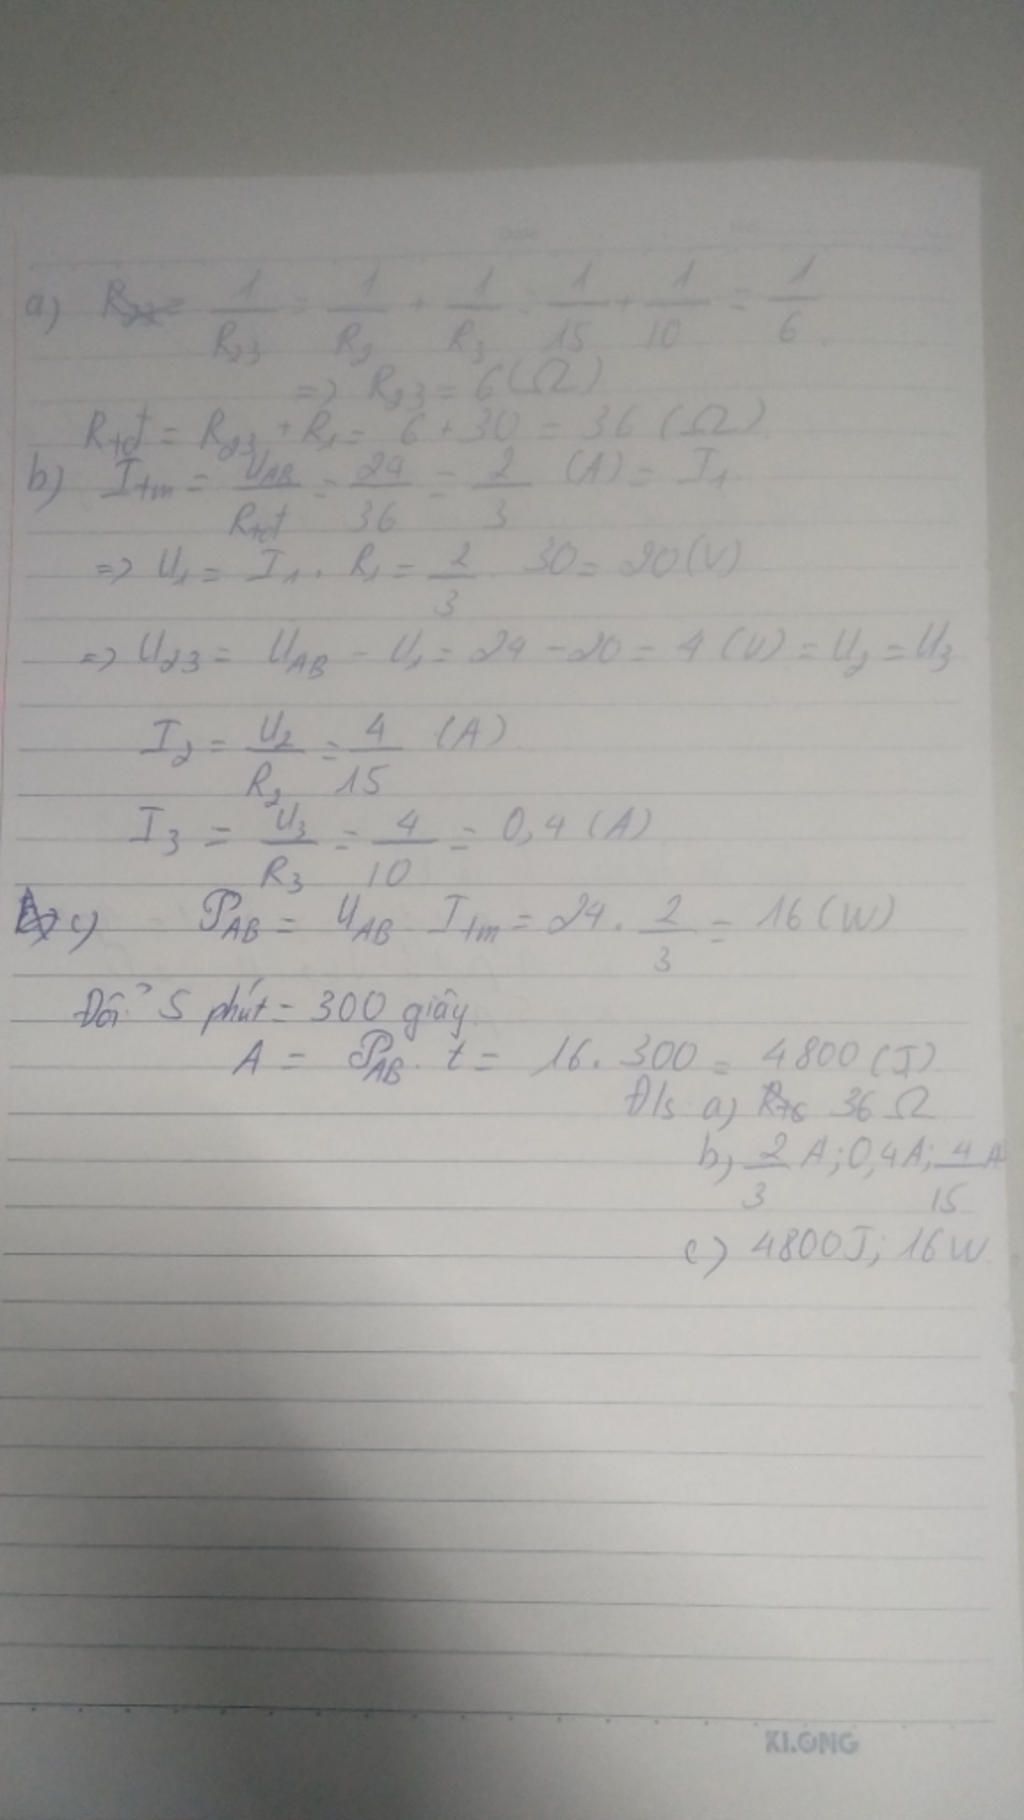 a) 1/R23 = 1/R2 + 1/R3 = 1/15 + 1/10 = 1/6
=> R23 = 6 (Ω)
Rtđ = R23 + R1 = 6 + 30 = 36 (Ω)
b) Itm = UAB/Rtđ = 24/36 = 2/3 (A) = I1
=> U1 = I1 . R1 = 2/3 . 30 = 20 (V)
=> U23 = UAB - U1 = 24 - 20 = 4 (V) = U2 = U3
I2 = U2/R2 = 4/15 (A)
I3 = U3/R3 = 4/10 = 0,4 (A)
c) PAB = UAB . Itm = 24 . 2/3 = 16 (W)
Đổi 5 phút = 300 giây
A = PAB . t = 16 . 300 = 4800 (J)
Đ/s a) 36 Ω
b) 2/3 A; 0,4A; 4/15 A
c) 4800J; 16W
KLONG